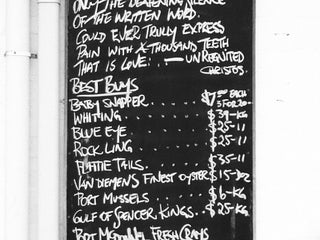 ONLY THE DEAFENING SILENCE
OF THE WRITTEN WORD.
COULD EVER TRULY EXPRESS
PAIN WITH A THOUSAND TEETH
THAT IS LOVE. — UNREQUITED
CHRISTOS.
BEST BUYS
BABY SNAPPER . . . . $7.00 EACH
3 FOR 20-
WHITING . . . . $39-KG
BLUE EYE . . . . $25-11
ROCK LING . . . . $25-11
FLATTIE TAILS. . . . $35-11
VAN DIEMEN'S FINEST OYSTERS $15-DOZ
PORT MUSSELS . . . . $6-KG
GULF OF SPENCER KINGS. . $25-KG
PORT McDONNEL FRESH CRAYS